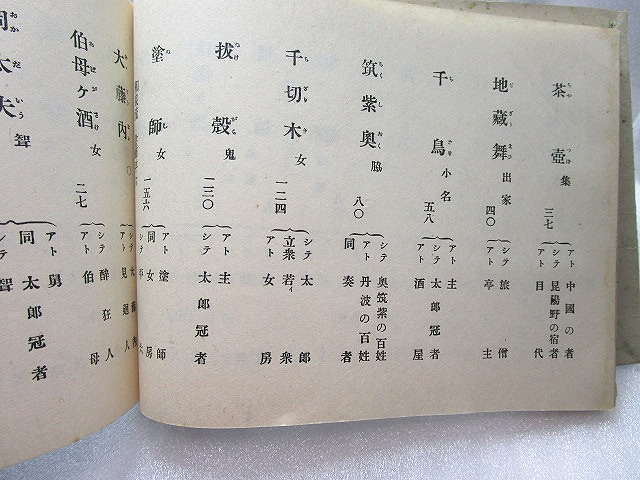 茶壺 集 三七
アト 中國の者
シテ 昆陽野の宿者
アト 目代
地藏舞 出家 四〇
シテ 旅僧
アト 亭主
千鳥 小名 五八
アト 主
シテ 太郎冠者
アト 酒屋
筑紫奥 脇 八〇
シテ 奥筑紫の百姓
アト 丹波の百姓
同 奏者
千切木 女 一二四
シテ 太郎
立衆 若イ衆
アト 女房
拔殼 鬼 一三〇
アト 主
シテ 太郎冠者
塗師 女 一五六
アト 塗師
同 女房
大藤内
伯母ケ酒 女 二七
シテ 醉狂人
アト 伯母
聟
アト 舅
同 太郎冠者
シテ 聟